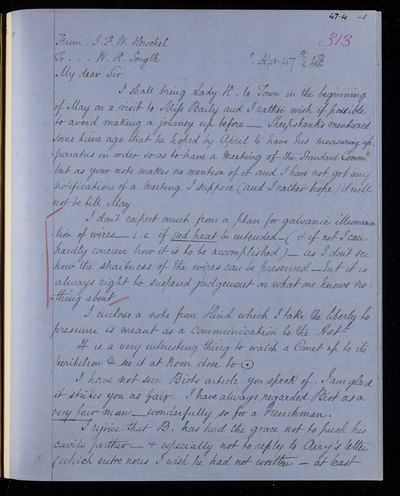 47·4
313
From . J. F. W. Herschel
To . . . W. H. Smyth
Apr. 47
My dear Sir
I shall bring Lady H. to Town in the beginning
of May on a visit to Miss Baily and I rather wish if possible
to avoid making a journey up before — Sheepshanks mentioned
some time ago that he hoped by April to have his measuring ap-
paratus in order so as to have a meeting of the Standard Commee
but as your note makes no mention of it and I have not got any
notification of a Meeting I suppose (and I rather hope) it will
not be till May
I dont expect much from a plan for galvanic illumina-
tion of wires — i.e. if red heat be intended — (& if not I can
hardly conceive how it is to be accomplished) — as I dont see
how the straitness of the wires can be preserved — but it is
always right to suspend judgement on what one knows no-
thing about.
I enclose a note from Hind which I take the liberty to
pressume is meant as a communication to the Astl
It is a very interesting thing to watch a Comet up to its
perihelion & see it at Noon close to ☉
I have not seen Biots article you speak of. I am glad
it strikes you as fair. I have always regarded Biot as a
very fair man — wonderfully so for a Frenchman.
I rejoice that B. has had the grace not to push his
cavils further — & especially not to reply to Airy's letter
(which entre nous I wish he had not written — at least